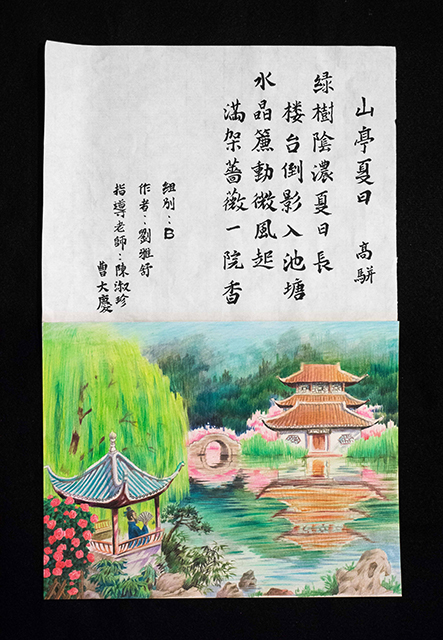 山亭夏日　高駢
绿樹陰濃夏日長
楼台倒影入池塘
水晶簾動微風起
滿架薔薇一院香
組別：B
作者：劉雅舒
指導老師：陳淑珍
曹大慶